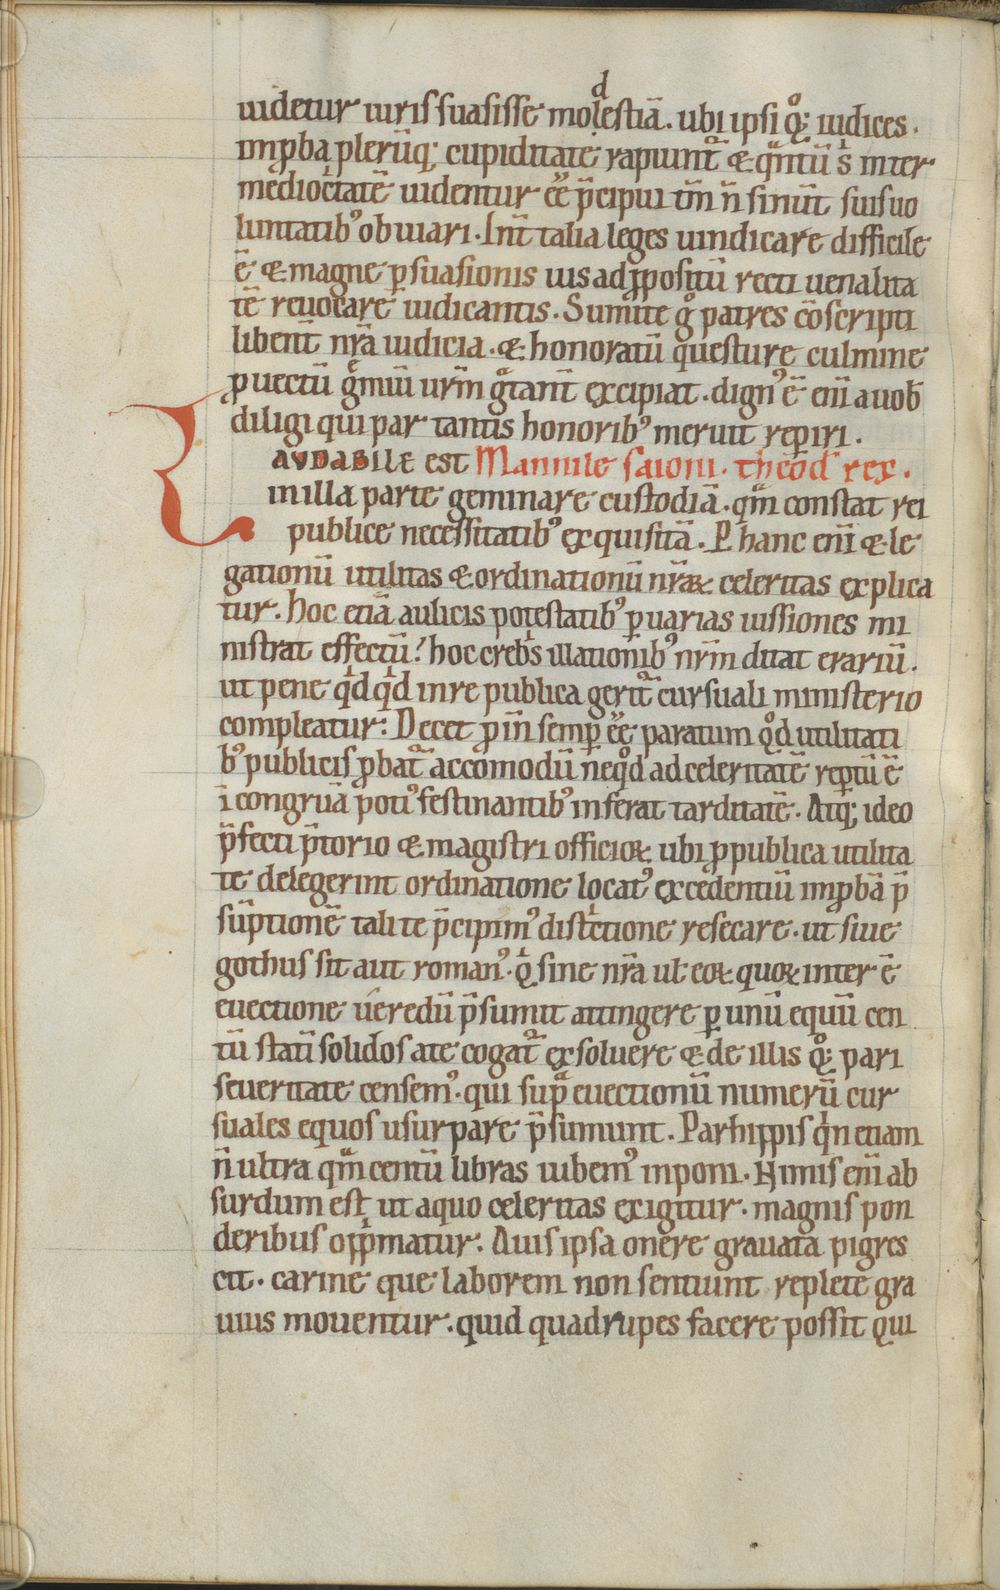 d
uidetur iuris suasisse molestiā. ubi ipsi qͦꝫ iudices.
imꝓba pleru̅qꝫ cupiditate rapiunt᷑ & qᷓntū s̛ inter
mediocͥtate̅ uidentur ee̅ p̅cipui tm̅ n̅ sinūt suis uo
luntatibꝰ obuiari. Int̅ talia leges uindicare difficile
e̅ & magne ꝑsuasionis uis ad ꝓpositū recti uenalita
te̅ reuocare iudicantis. Sumite gͦ patres co̅scripti
libent̅ nr̅a iudicia. & honoratū questure culmine
ꝓuectū gͤmiū urm̅ gͣtant̅ excipiat. dignꝰ e̅ eni̅ a uob̅
diligi qui par tantis honoribꝰ meruit reꝑiri.
LAUDABILE est Mannile saioni. theod̅ rex.
in illa parte geminare custodiā. qᷓm constat rei
publice necessitatibꝰ exquisitā. P hanc eni̅ & le
gationū utilitas & ordinationū nr̅aꝝ celeritas explica
tur. Hoc etiā aulicis potestatibꝰ ꝑ uarias iussiones mi
nistrat effectū? hoc crebͥs illationibꝰ nrm̅ ditat erariū.
ut pene qͥd qͥd in re publica gerit᷑ cursuali ministerio
compleatur: Decet ꝓin̅ semꝑ ee̅ paratum qͦd utilitati
bꝰ publicis ꝓbat᷑ accomodū ne qͦd ad celeritate̅ reꝑtū e̅
i̅congruā potiꝰ festinantibꝰ inferat tarditate̅. Atqꝫ ideo
p̅fecti p̅torio & magistri officioꝝ ubi ꝓ publica utilita
te delegerint ordinatione locatꝰ excedentiū imꝓbā p̅
su̅ptione̅ tali te p̅cipimꝰ distͥctione resecare. ut siue
gothus sit aut romanꝰ. qͥ sine nr̅a ul̅ eoꝝ quoꝝ inter e̅
euectione ueredū p̅sumit attingere ꝑ unū equū cen
tū stati̅ solidos a te cogat᷑ exsoluere & de illis qͦꝫ pari
seueritate censemꝰ. qui supͣ euectionū numerū cur
suales equos usurpare p̅sumunt. Parhippis qͥn etiam
n̅ ultra qᷓm centū libras iubemꝰ inponi. Nimis eni̅ ab
surdum est ut a quo celeritas exigitur. magnis pon
deribus oppͥmatur. Auis ipsa onere grauata pigres
cit. carine que laborem non sentiunt replete gra
uius mouentur. quid quadrupes facere possit qui